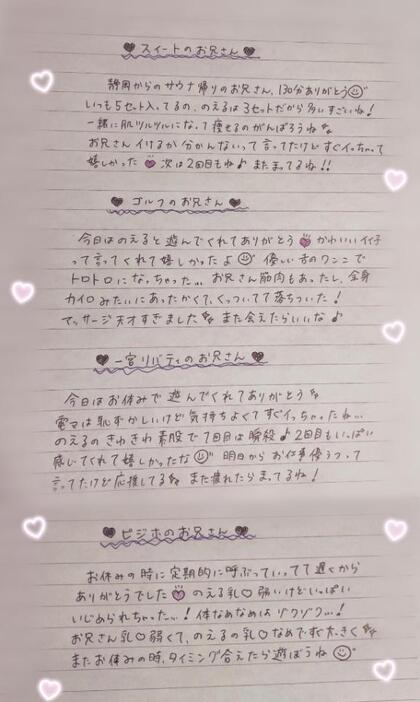 スイートのお兄さん
静岡からのサウナ帰りのお兄さん、130分ありがとう
いつも5セット入ってるの、のえるは3セットだから多いすごいね!
一緒に肌ツルツルになって痩せるのがんばろうね
お兄さんイけるか分かんないって言ってたけどすぐイっちゃって
嬉しかった 次は2回目もね♪ またまってるね!!
ゴルフのお兄さん
今日はのえると遊んでくれてありがとう かわいいイイ子
って言ってくれて嬉しかったよ 優しい舌のワンコで
トロトロになっちゃった... お兄さん筋肉もあったし、全身
カイロみたいにあったかくて、くっついてて落ちついた!
マッサージ天才すぎました また会えたらいいな♪
一宮リバティのお兄さん
今日はお休みで遊んでくれてありがとう
電マは恥ずかしいけど気持ちよくてすぐイっちゃったね...
のえるのきゅわきゅわ素股で1回目は瞬殺♪2回目もいっぱい
感じてくれて嬉しかったな 明日からお仕事憂うつって
言ってたけど応援してる また疲れたらまってるね!
ビジホのお兄さん
お休みの時に定期的に呼ぶっていってて遅くから
ありがとうでした のえる乳○弱いけどいっぱい
いじめられちゃった...! 体なめなめはゾクゾク...!
お兄さん乳○弱くて、のえるの乳○なめですぐ大きく
またお休みの時、タイミング合えたら遊ぼうね